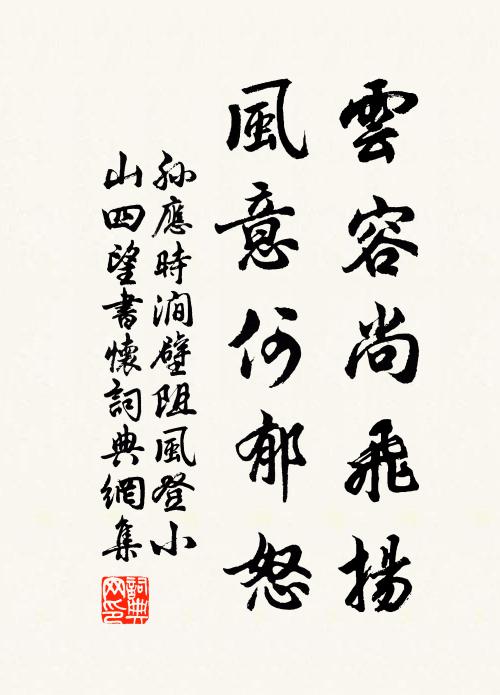 雲容尚飛揚
風意何郁怒
孫應時澗壁阻風登小
山四望書懷詞典網集
詞典网印